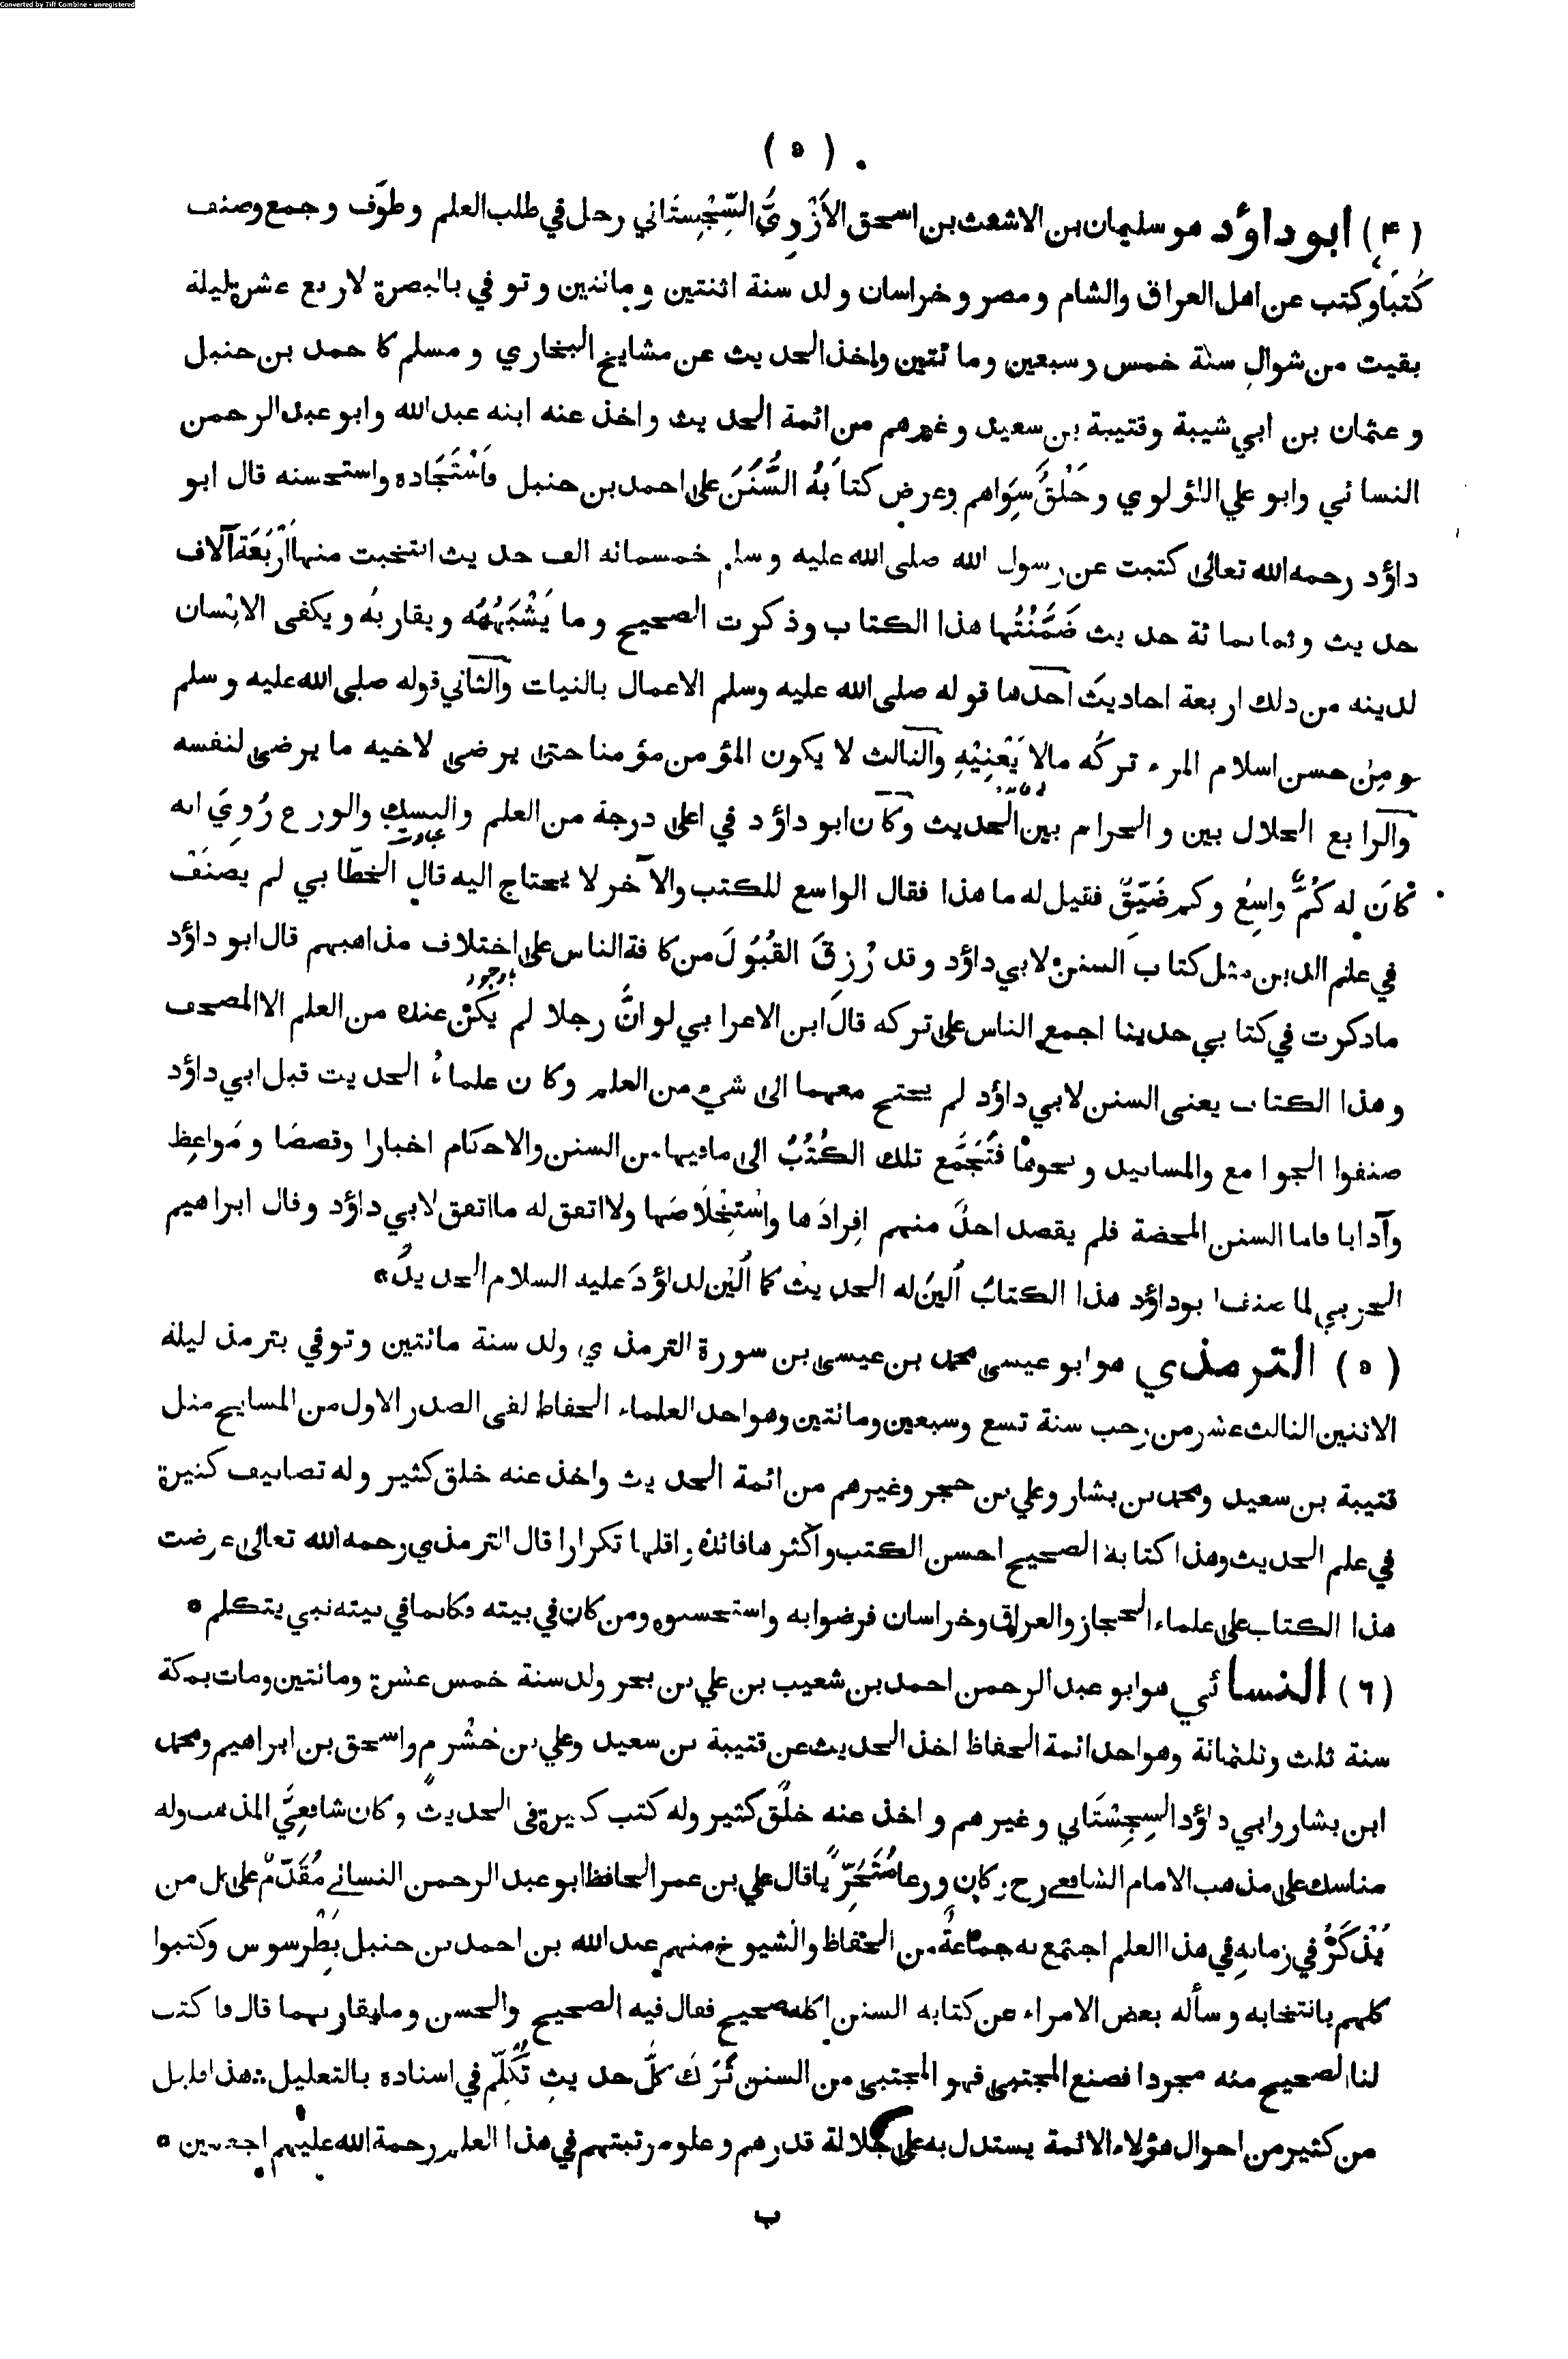 Converted by Tiff Combine - unregistered
( ٥ )
(۴) ابو داؤد هو سليمان بن الاشعث بن اسحق الأَزْدِيُّ السِّجِسْتَاني رحل في طلب العلم و طوَّف و جمع وصنف
كُتبا وكتب عن اهل العراق والشام و مصر و خراسان ولد سنة اثنتين و مائتين و توفي بالبصرة لاربع عشرة ليلة
بقيت من شوال سنة خمس و سبعين و مائتين واخذ الحديث عن مشايخ البخاري و مسلم كاحمد بن حنبل
و عثمان بن ابي شيبة و قتيبة بن سعيد و غيرهم من ائمة الحديث و اخذ عنه ابنه عبد الله وابو عبد الرحمن
النسائي وابو علي اللؤلوي و خَلْقٌ سِوَاهم وعرض كتابَهُ السُّنَنَ على احمد بن حنبل فَاسْتَجَاده واستحسنه قال ابو
داؤد رحمه الله تعالى كتبت عن رسول الله صلى الله عليه و سلم خمسمائة الف حديث انتخبت منها أَرْبَعَة آلاف
حديث و ثمانمائة حديث ضَمَّنْتُها هذا الكتاب وذكرت الصحيح و ما يَشْبَهُهُ و يقاربُه و يكفى الانسان
لدينه من ذلك اربعة احاديث احدها قوله صلى الله عليه وسلم الاعمال بالنيات والثاني قوله صلى الله عليه و سلم
و مِن حسن اسلام المرء تركُه مالا يَعْنِيْهِ والثالث لا يكون المؤمن مؤمنا حتى يرضى لاخيه ما يرضى لنفسه
والرابع الحلال بين و الحرام بين الحديث وكان ابو داؤد في اعلى درجة من العلم والنسك والورع رُوِيَ انه
عبادت
كانَ له كُمٌّ واسِعٌ وكم ضَيِّقٌ فقيل له ما هذا فقال الواسع للكتب والآخر لا يحتاج اليه قال الخطّابي لم يصنف
في علم الدين مثل كتاب السنن لابي داؤد و قد رُزِقَ القُبُولَ من كافة الناس على اختلاف مذاهبهم قال ابو داؤد
ماذكرت في كتابي حديثا اجمع الناس على تركه قال ابن الاعرابي لو انَّ رجلا لم يكن عنده من العلم الا المصحف
وهذا الكتاب يعنى السنن لابي داؤد لم يحتج معهما الى شيء من العلم وكان علماءُ الحديث قبل ابي داؤد
صنفوا الجوامع والمسانيد و نحوها فتَجَمَّع تلك الكُتُبُ الى مافيها من السنن والاحكام اخبارا وقصصا و مَواعِظ
وآدابا فاما السنن المحضة فلم يقصد احدٌ منهم افرادَها واسْتِخْلَاصَها ولا اتفق له ما اتفق لابي داؤد وقال ابراهيم
الحربي لما صنف ابو داؤد هذا الكتاب أُلِينَ له الحديث كما أُلِيْن لداؤدَ عليه السلام الحديد
(٥) الترمذي هو ابو عيسى محمد بن عيسى بن سورة الترمذي ولد سنة مائتين و توفي بترمذ ليلة
الاثنين الثالث عشر من رجب سنة تسع وسبعين ومائتين وهو احد العلماء الحفاظ لقى الصدر الاول من المشايخ مثل
قتيبة بن سعيد و محمد بن بشار وعلي بن حجر وغيرهم من ائمة الحديث واخذ عنه خلق كثير وله تصانيف كثيرة
في علم الحديث وهذا كتابه الصحيح احسن الكتب واكثرها فائدة واقلها تكرارا قال الترمذي رحمه الله تعالى عرضت
هذا الكتاب على علماء الحجاز والعراق وخراسان فرضوا به واستحسنوه ومن كان في بيته فكانما في بيته نبي يتكلم
(٦) النسائي هو ابو عبد الرحمن احمد بن شعيب بن علي بن بحر ولد سنة خمس عشرة ومائتين ومات بمكة
سنة ثلث وثلثمائة وهو احد ائمة الحفاظ اخذ الحديث عن قتيبة بن سعيد وعلي بن خشرم واسحق بن ابراهيم ومحمد
ابن بشار وابي داؤد السجِسْتَاني وغيرهم و اخذ عنه خلْق كثير وله كتب كثيرة فى الحديث وكان شافعِيَّ المذهب وله
مناسك على مذهب الامام الشافعي رح وكان ورعا مُتَحَرِّيًا قال علي بن عمر الحافظ ابو عبد الرحمن النسائي مُقَدَّمٌ على كل من
يُذْكَرُ في زمانِهِ في هذا العلم اجتمع به جماعةٌ من الحفاظ والشيوخ منهم عبد الله بن احمد بن حنبل بِطَرسوس وكتبوا
كلهم بانتخابه وسأله بعض الامراء عن كتابه السنن اكله صحيح فقال فيه الصحيح والحسن وما يقاربهما قال فاكتب
لنا الصحيح منه مجردا فصنع المجتبى فهو المجتبى من السنن تَرَك كلَّ حديثٍ تُكُلِّم في اسناده بالتعليل هذا قليل
من كثير من احوال هؤلاء الائمة يستدل به على جلالة قدرهم وعلو مرتبتهم في هذا العلم رحمة الله عليهم اجمعين
ب